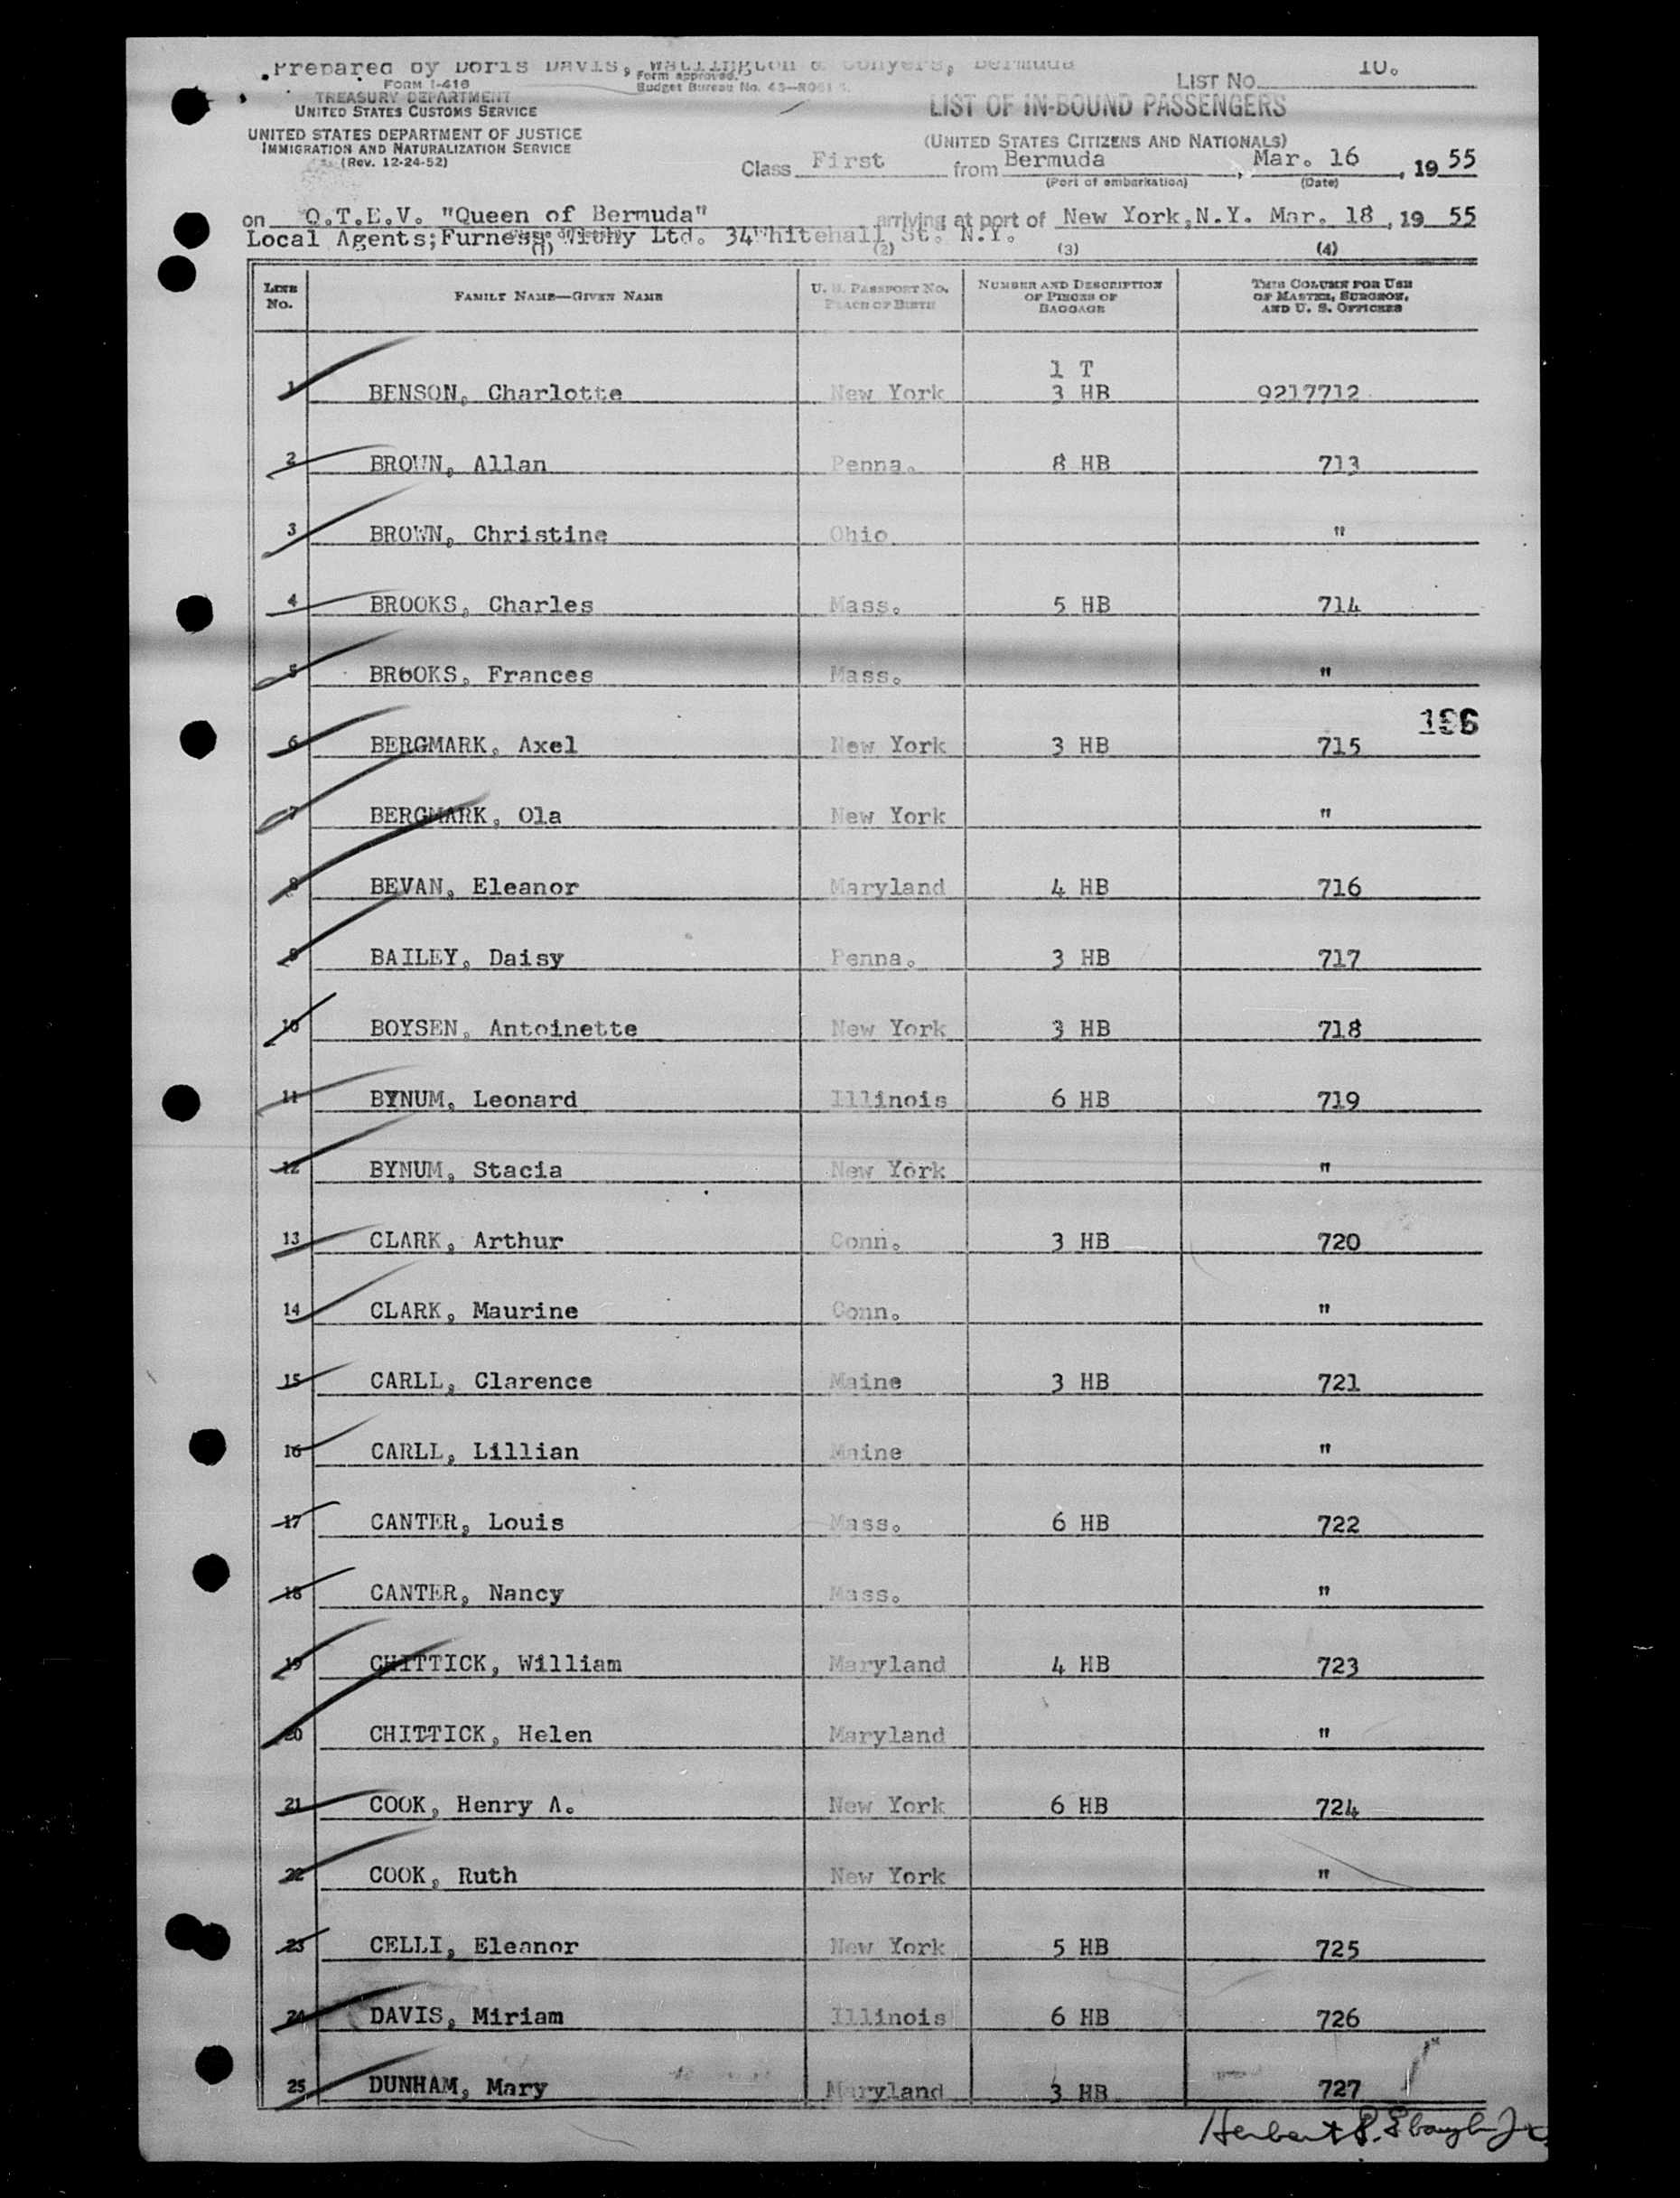 Prepared by Doris Davis, Wallington & Conyers, Bermuda
10.
FORM I-418
Form approved.
Budget Bureau No. 43—R051
LIST NO.
TREASURY DEPARTMENT
UNITED STATES CUSTOMS SERVICE
LIST OF IN-BOUND PASSENGERS
UNITED STATES DEPARTMENT OF JUSTICE
IMMIGRATION AND NATURALIZATION SERVICE
(Rev. 12-24-52)
(UNITED STATES CITIZENS AND NATIONALS)
Class First from Bermuda, Mar. 16, 1955
(Port of embarkation) (Date)
on Q.T.E.V. "Queen of Bermuda" arriving at port of New York, N.Y. Mar. 18, 1955
Local Agents; Furness, Withy Ltd. 34 Whitehall St. N.Y.
(1) (2) (3) (4)
LINE NO. FAMILY NAME—GIVEN NAME U. S. PASSPORT NO. PLACE OF BIRTH NUMBER AND DESCRIPTION OF PIECES OF BAGGAGE THIS COLUMN FOR USE OF MASTER, SURGEON, AND U. S. OFFICERS
1 T
1 BENSON, Charlotte New York 3 HB 9217712
2 BROWN, Allan Penna. 8 HB 713
3 BROWN, Christine Ohio "
4 BROOKS, Charles Mass. 5 HB 714
5 BROOKS, Frances Mass. "
196
6 BERGMARK, Axel New York 3 HB 715
7 BERGMARK, Ola New York "
8 BEVAN, Eleanor Maryland 4 HB 716
9 BAILEY, Daisy Penna. 3 HB 717
10 BOYSEN, Antoinette New York 3 HB 718
11 BYNUM, Leonard Illinois 6 HB 719
12 BYNUM, Stacia New York "
13 CLARK, Arthur Conn. 3 HB 720
14 CLARK, Maurine Conn. "
15 CARLL, Clarence Maine 3 HB 721
16 CARLL, Lillian Maine "
17 CANTER, Louis Mass. 6 HB 722
18 CANTER, Nancy Mass. "
19 CHITTICK, William Maryland 4 HB 723
20 CHITTICK, Helen Maryland "
21 COOK, Henry A. New York 6 HB 724
22 COOK, Ruth New York "
23 CELLI, Eleanor New York 5 HB 725
24 DAVIS, Miriam Illinois 6 HB 726
25 DUNHAM, Mary Maryland 3 HB 727
Herbert